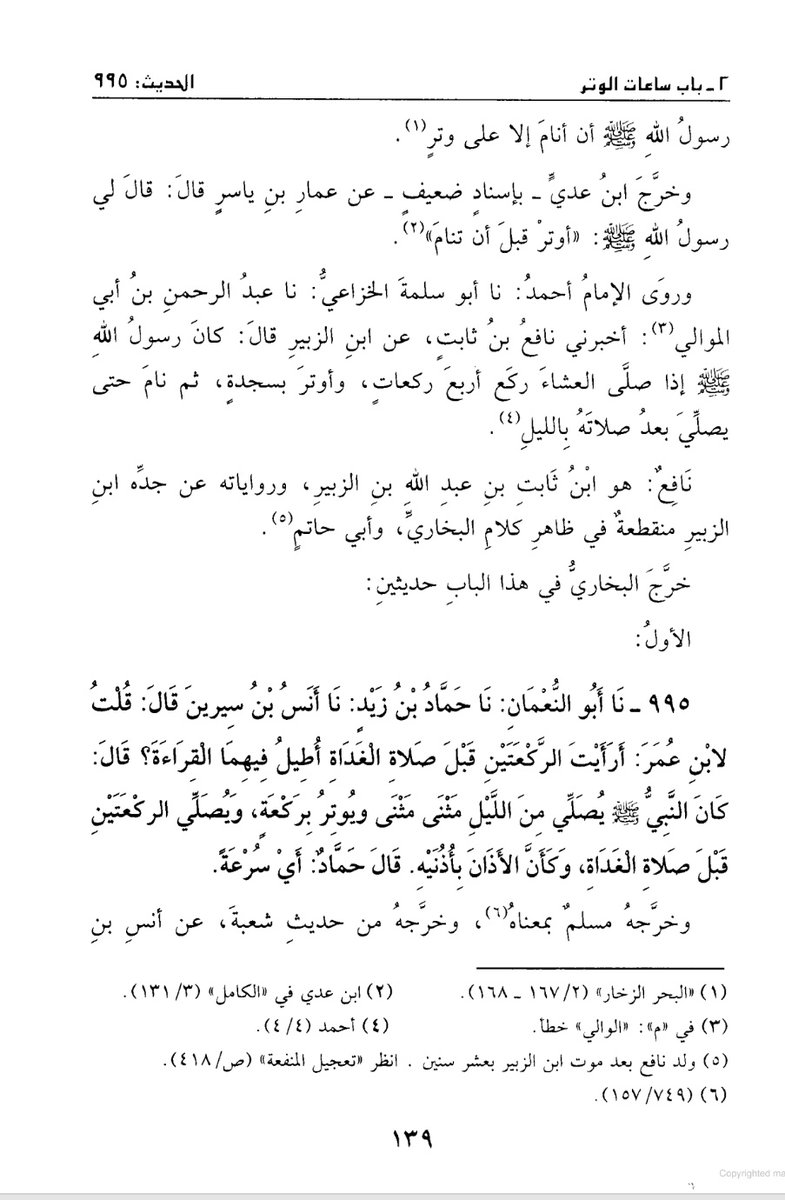 ٢ ـ باب ساعات الوتر
الحديث: ٩٩٥
رسولُ اللهِ ﷺ أن أنامَ إلا على وترٍ(١).
وخرَّجَ ابنُ عديٍّ ـ بإسنادٍ ضعيفٍ ـ عن عمارِ بنِ ياسرٍ قالَ: قالَ لي
رسولُ اللهِ ﷺ: «أوترْ قبلَ أن تنامَ»(٢).
وروَى الإمامُ أحمدُ: نا أبو سلمةَ الخزاعيُّ: نا عبدُ الرحمنِ بنُ أبي
الموالي(٣): أخبرني نافعُ بنُ ثابتٍ، عن ابنِ الزبيرِ قالَ: كانَ رسولُ اللهِ
ﷺ إذا صلَّى العشاءَ ركَع أربعَ ركعاتٍ، وأوترَ بسجدةٍ، ثم نامَ حتى
يصلِّيَ بعدُ صلاتَهُ بِالليلِ(٤).
نَافِعٌ: هو ابْنُ ثَابتِ بنِ عبدِ اللهِ بنِ الزبيرِ، ورواياته عن جدِّه ابنِ
الزبيرِ منقطعةٌ في ظاهرِ كلامِ البخاريِّ، وأبي حاتمٍ(٥).
خرَّجَ البخاريُّ في هذا البابِ حديثينِ:
الأولُ:
٩٩٥ ـ نَا أَبُو النُّعْمَانِ: نَا حَمَّادُ بْنُ زَيْدٍ: نَا أَنَسُ بْنُ سِيرينَ قَالَ: قُلْتُ
لابْنِ عُمَرَ: أَرَأَيْتَ الرَّكْعَتَيْنِ قَبْلَ صَلاةِ الْغَدَاةِ أُطِيلُ فِيهِمَا الْقِرَاءَةَ؟ قَالَ:
كَانَ النَّبِيُّ ﷺ يُصَلِّي مِنَ اللَّيْلِ مَثْنَى مَثْنَى ويُوتِرُ بِرَكْعَةٍ، وَيُصَلِّي الركْعَتَيْنِ
قَبْلَ صَلاةِ الْغَدَاةِ، وَكَأَنَّ الأَذَانَ بِأُذُنَيْهِ. قَالَ حَمَّادٌ: أَيْ سُرْعَةً.
وخرَّجهُ مسلمٌ بمعناهُ(٦)، وخرَّجهُ من حديثِ شعبةَ، عن أنسِ بنِ
(١) «البحر الزخار» (٢/ ١٦٧ ـ ١٦٨).
(٢) ابن عدي في «الكامل» (٣/ ١٣١).
(٣) في «م»: «الوالي» خطأ.
(٤) أحمد (٤/ ٤).
(٥) ولد نافع بعد موت ابن الزبير بعشر سنين . انظر «تعجيل المنفعة» (ص/ ٤١٨).
(٦) (٧٤٩/ ١٥٧).
١٣٩
Copyrighted ma